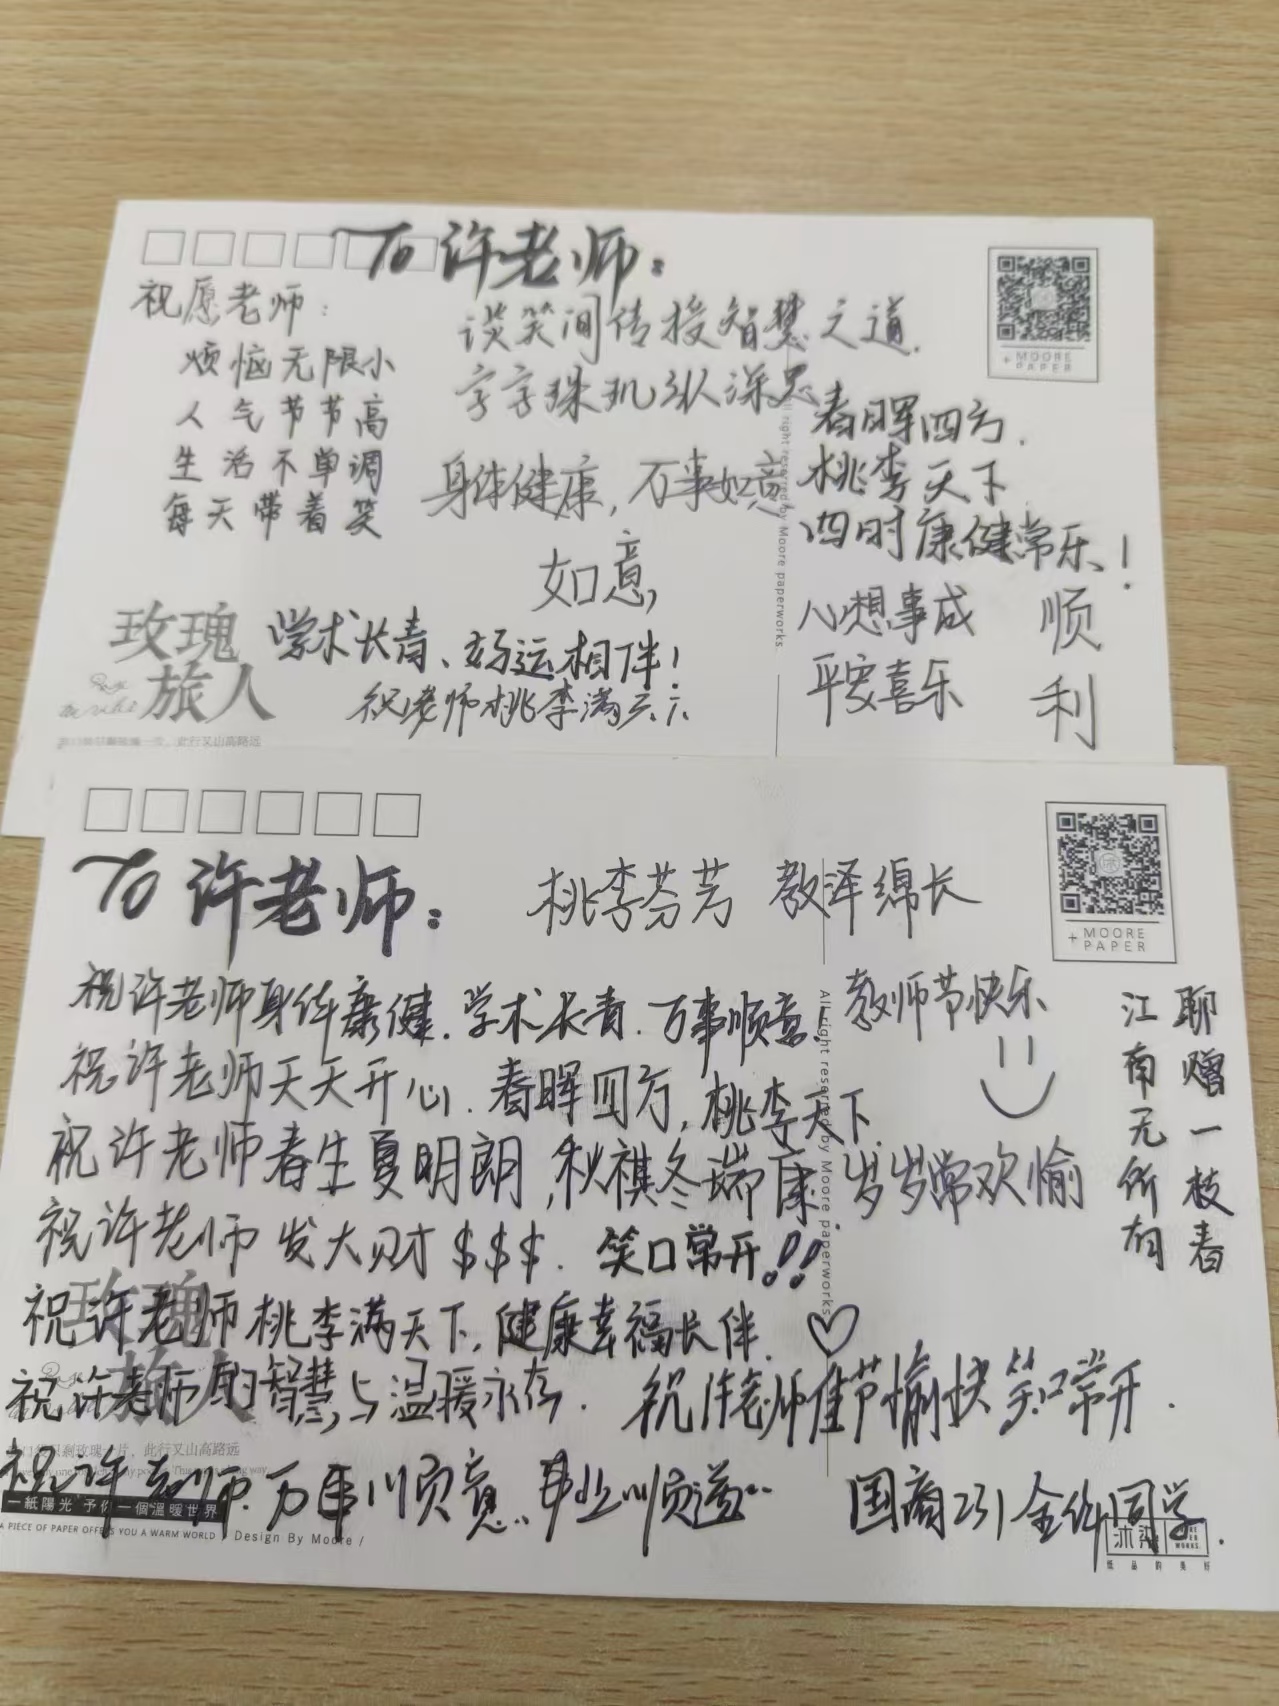 To 许老师：
祝愿老师：
烦恼无限小
人气节节高
生活不单调
每天带着笑
谈笑间传授智慧之道.
字字珠玑纵深思
身体健康，万事如意
如意，
学术长青、好运相伴！
祝老师桃李满天下
春晖四方.
桃李天下
四时康健常乐！
心想事成
平安喜乐
顺
利
+ MOORE
PAPER
All right reserved by Moore paperworks.
玫瑰
旅人
此行又山高路远
To 许老师：
桃李芬芳 教泽绵长
祝许老师身体康健.学术长青.万事顺意.
教师节快乐
祝许老师天天开心.春晖四方,桃李天下.
祝许老师春生夏明朗,秋祺冬瑞康.岁岁常欢愉
祝许老师发大财$$$.笑口常开!!
祝许老师桃李满天下,健康幸福长伴.
祝许老师的智慧与温暖永存.
祝许老师佳节愉快笑口常开.
祝许老师.万事顺意.事业顺遂
国商231全体同学.
聊赠一枝春
江南无所有
+ MOORE
PAPER
All right reserved by Moore paperworks.
玫瑰
旅人
只剩玫瑰一片，此行又山高路远
一紙陽光 予你一個溫暖世界
A PIECE OF PAPER OFFERS YOU A WARM WORLD
Design By Moore /
纸品的美好